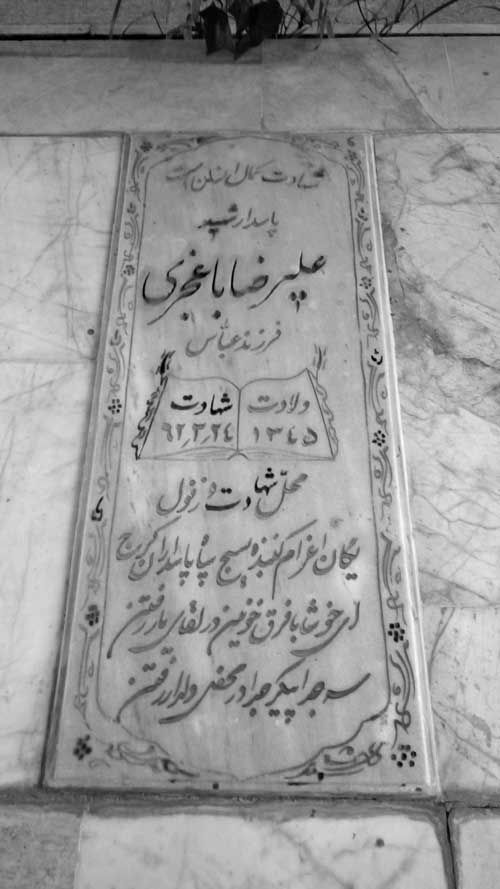 شهادت کمال انسان است
پاسدار شهید
علیرضا باغجری
فرزند عباس
شهادت ولادت
۶۲٫۳٫۲٤ ۱۳٤۵
محل شهادت دزفول
یگان اعزام کننده بسیج سپاه پاسداران کرج
ای خوشا با فرق خونین در لقای یار رفتن
سر جدا پیکر جدا در محفل دلدار رفتن